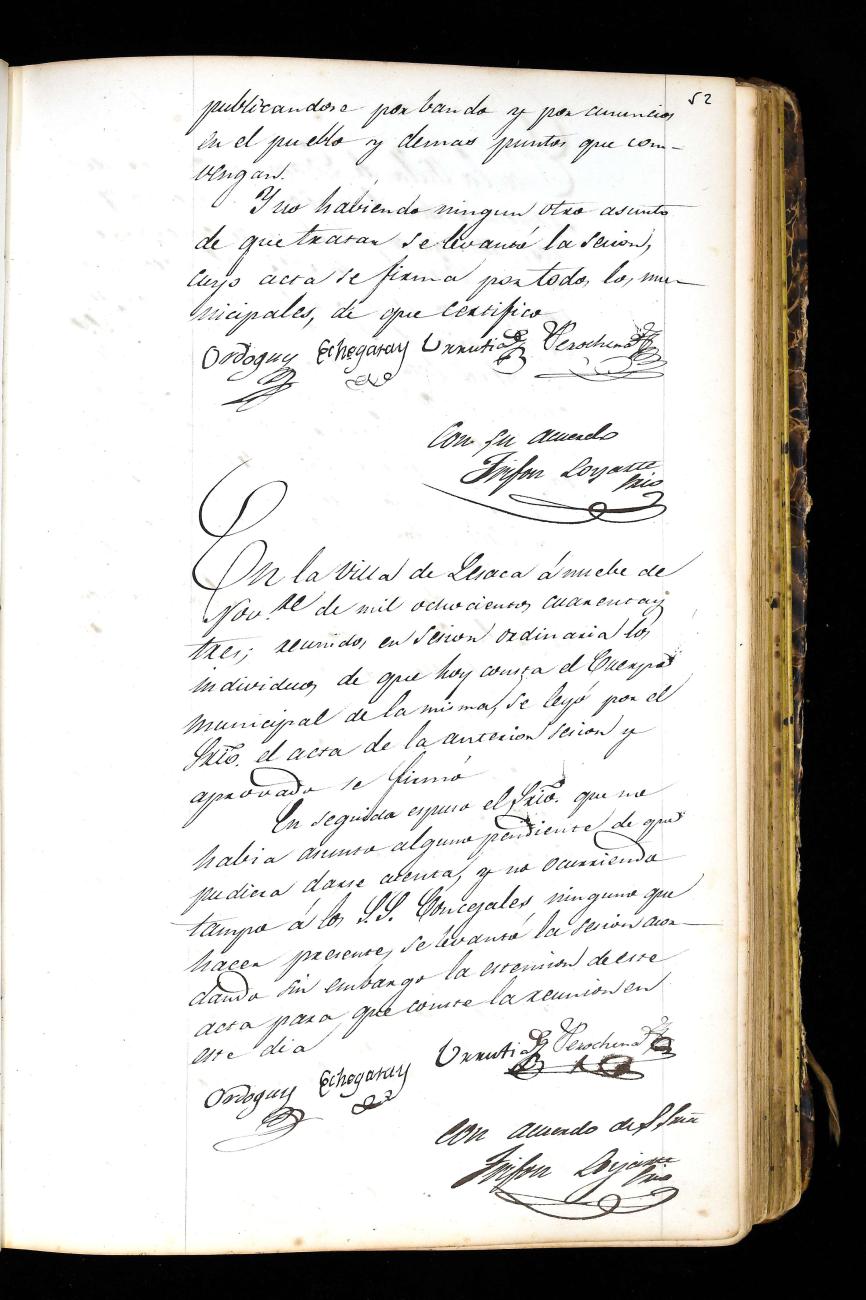 52
publicandose por bando y por anuncios
en el pueblo y demas puntos que com-
vengan.
Y no habiendo ningun otro asunto
de que tratar se levantó la sesion,
cuyo acta se firma por todos los mu-
nicipales, de que certifico
Ordoguy Echegaray Urrutia Perochena
Con su acuerdo
Trifon Loyarte
Srio
En la Villa de Lesaca á nuebe de
Nov.re de mil ochocientos cuarenta y
tres; reunidos en sesion ordinaria los
individuos de que hoy consta el Cuerpo
municipal de la misma, se leyó por el
Srio. el acta de la anterior sesion y
aprovado se firmó
En seguida espuso el Srio. que no
habia asunto alguno pendiente de que
pudiera darse cuenta, y no ocurriendo
tampo á los S.S. Concejales ninguno que
hacer presente, se levantó la sesion acor-
dando sin embargo la estension de este
acta para que conste la reunion en
este dia
Ordoguy Echegaray Urrutia Perochena
Con acuerdo de S. Sria
Trifon Loyarte
Srio